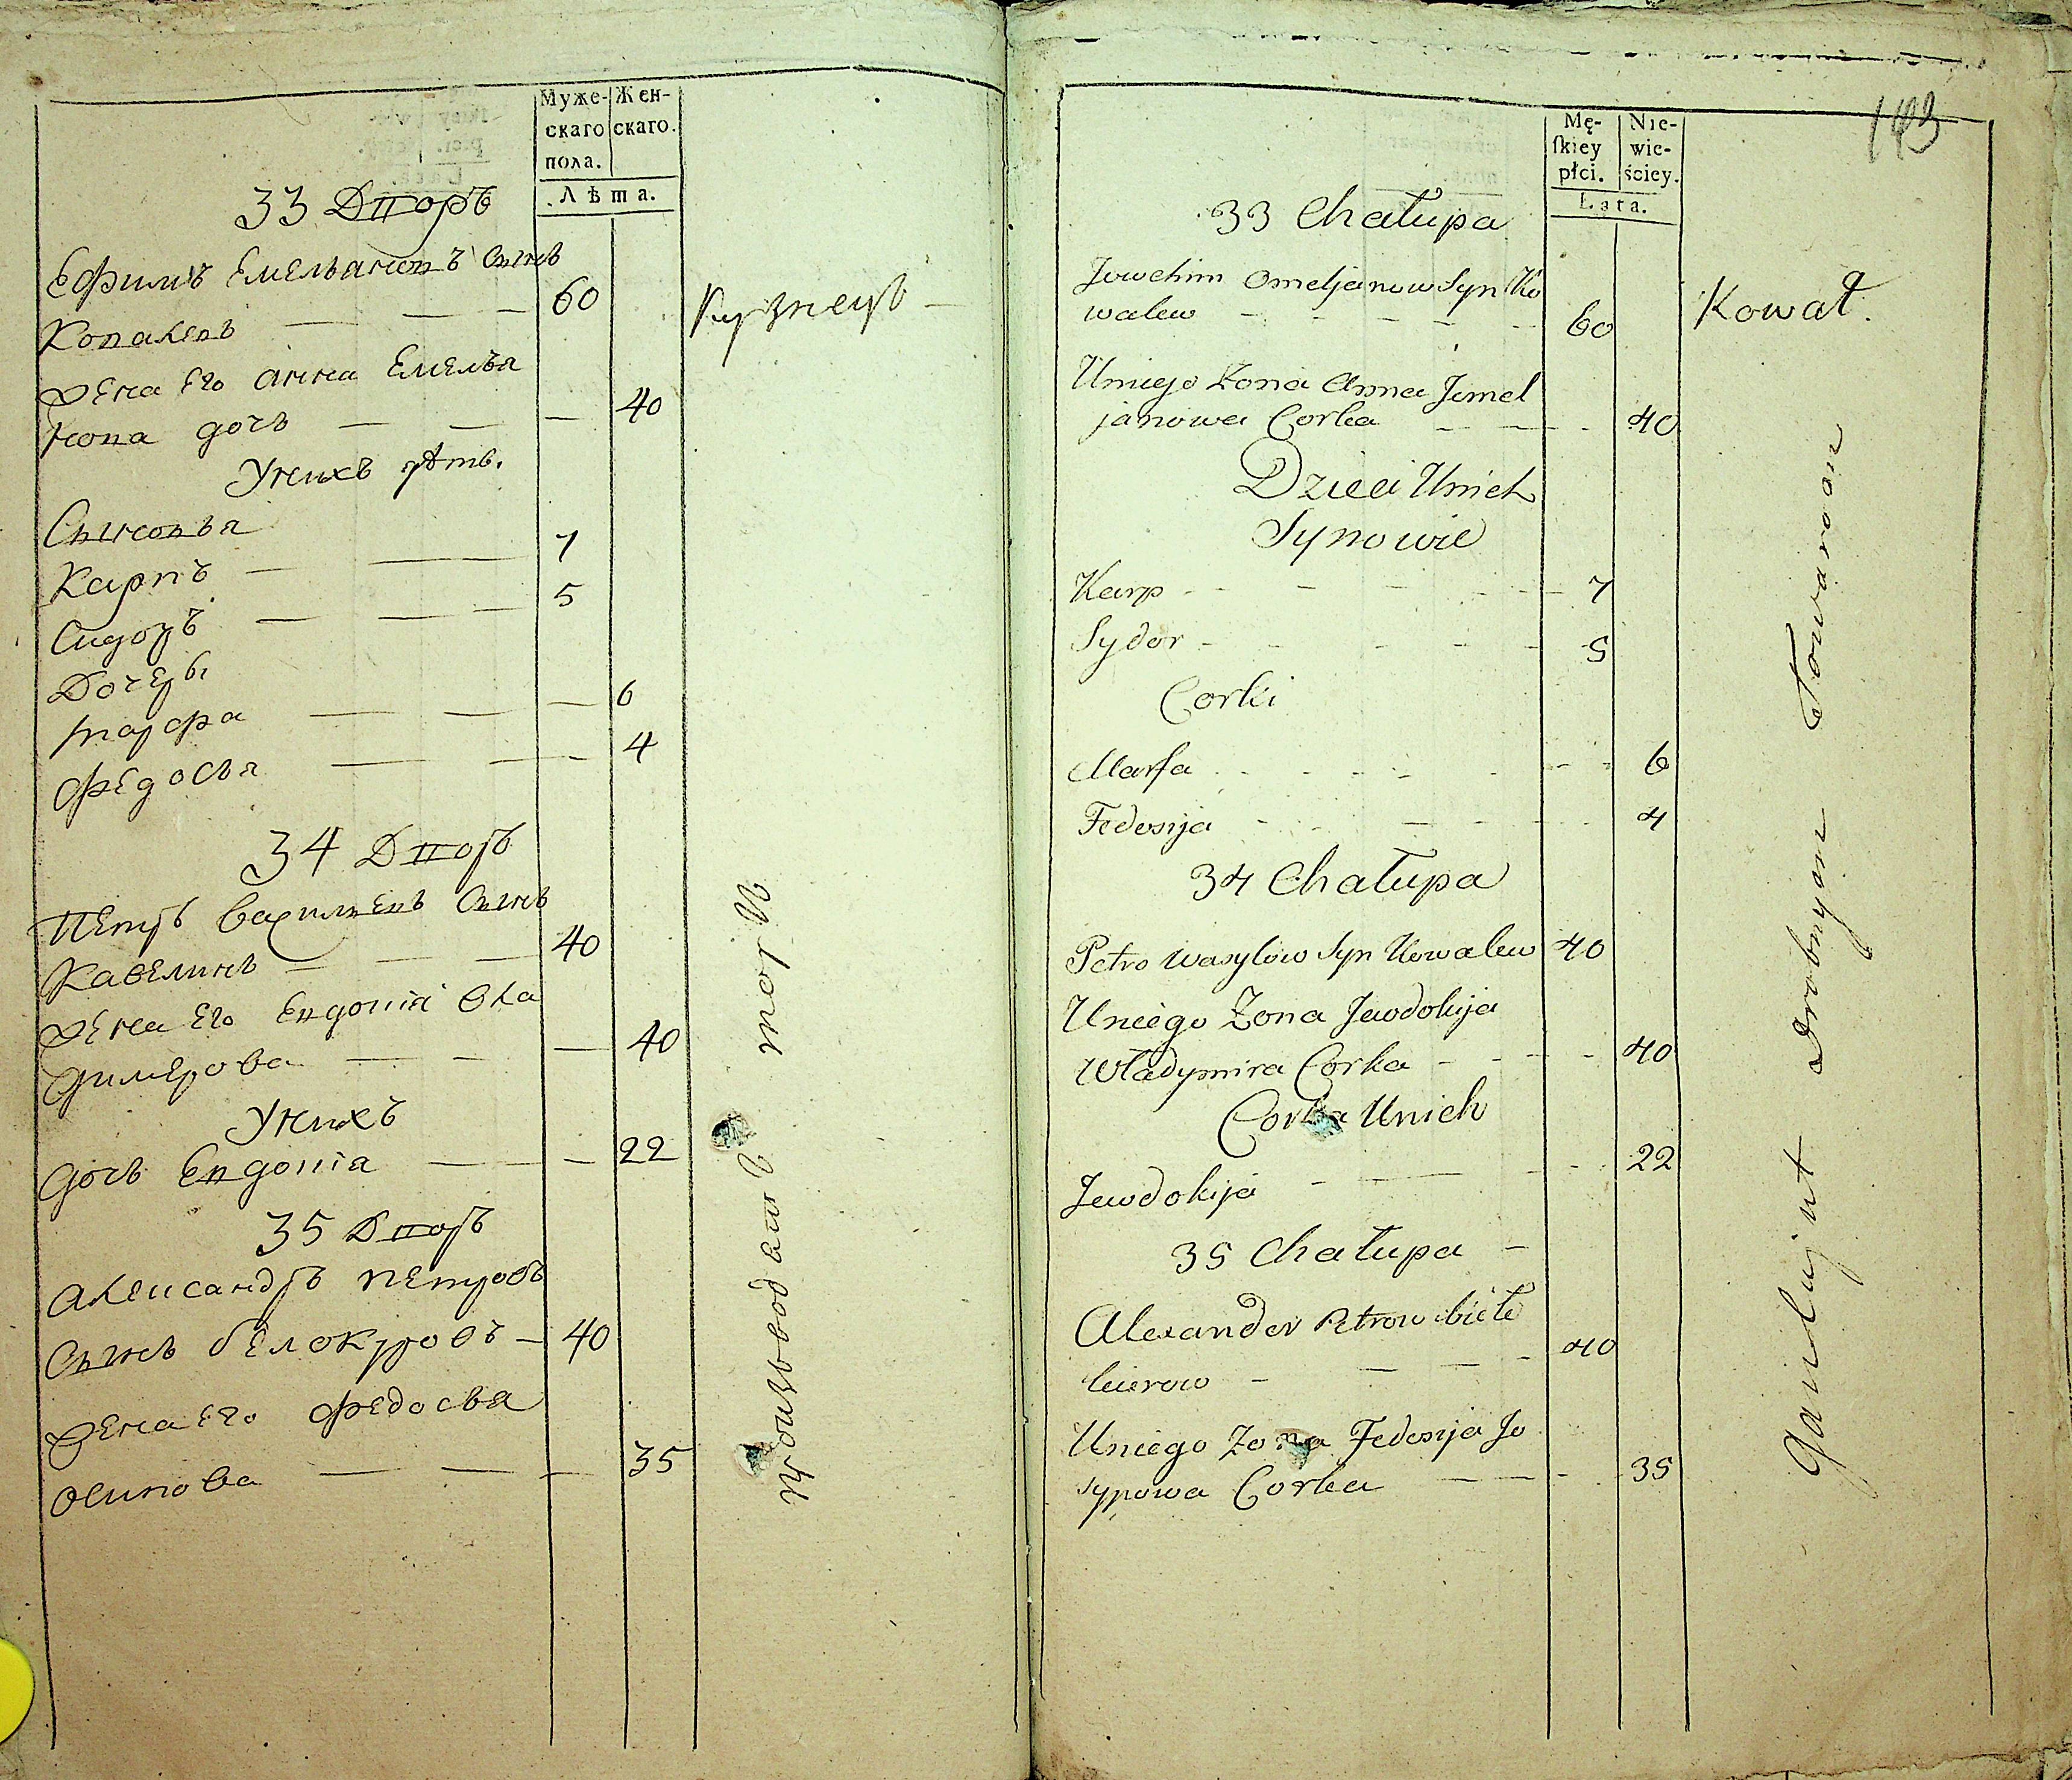 Муже-
скаго
пола.
Жен-
скаго.
Лѣта.
33 Дворъ
Ефимъ Емельановъ сынъ
Ковалевъ — — — 60
Кузнецъ —
Жена его анна Емелья
нова дочь — — — 40
Унихъ дѣти.
Сыновья
Карпъ — — 7
Сидоръ — — 5
Дочеры
марфа — — — 6
Федосья — — — 4
34 Дворъ
Петръ Василиевъ сынъ
Кавелинъ — — — 40
Жена его Евдокиа Вла
димерова — — — 40
Унихъ
дочь Евдокиа — — — 22
35 Дворъ
Александръ петровъ
сынъ белокуровъ — 40
Жена его Федосья
осипова — — — 35
торгъ
Mę-
skiey
płci.
Nie-
wie-
ściey.
Lata.
143
33 Chałupa
Jowchim Omeljanow Syn Ko
walew - - - - - 60
Kowal.
Uniego Zona Anna Jemel
janowa Corka - - - 40
Dzieci Unich
Synowie
Karp - - - - - 7
Sydor - - - - - 5
Corki
Marfa - - - - - 6
Fedosija - - - - - 4
34 Chałupa
Petro Wasylow Syn Kowalew 40
Uniego Zona Jewdokija
Władymira Corka - - - - 40
Corka Unich
Jewdokija - - - - 22
35 Chałupa -
Alexander Petrow biele
kurow - - - - 40
Uniego Zona Fedosija Jo
sypowa Corka - - - - 35
drobnym Towarom